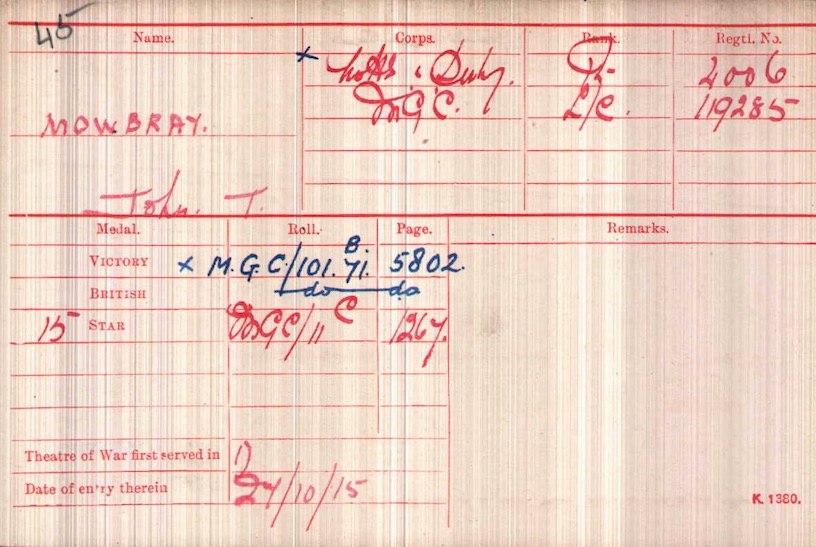 45
Name. Corps. Rank. Regtl. No.
x Notts & Derby. Pte 2006
MOWBRAY. M.G.C. L/C. 119285
John. T.
Medal. Roll. Page. Remarks.
VICTORY x M.G.C/101.B.71. 5802.
BRITISH do do
15 STAR MGC/11 C 1267.
Theatre of War first served in
Date of entry therein 27/10/15
K. 1380.